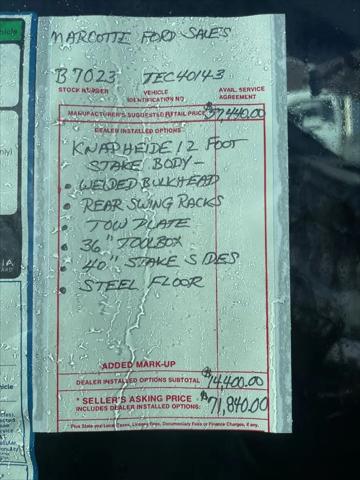 MARCOTTE FORD SALES
B7023 TEC40143
STOCK NUMBER VEHICLE IDENTIFICATION NO AVAIL. SERVICE AGREEMENT
MANUFACTURER'S SUGGESTED RETAIL PRICE $57,440.00
DEALER INSTALLED OPTIONS
KNAPHEIDE 12 FOOT
STAKE BODY -
• WELDED BULKHEAD
• REAR SWING RACKS
• TOW PLATE
• 36" TOOLBOX
• 40" STAKE SIDES
• STEEL FLOOR
ADDED MARK-UP
DEALER INSTALLED OPTIONS SUBTOTAL $14,400.00
* SELLER'S ASKING PRICE $71,840.00
INCLUDES DEALER INSTALLED OPTIONS:
Plus State and Local Taxes, License Fees, Documentary Fees or Finance Charges, if any.